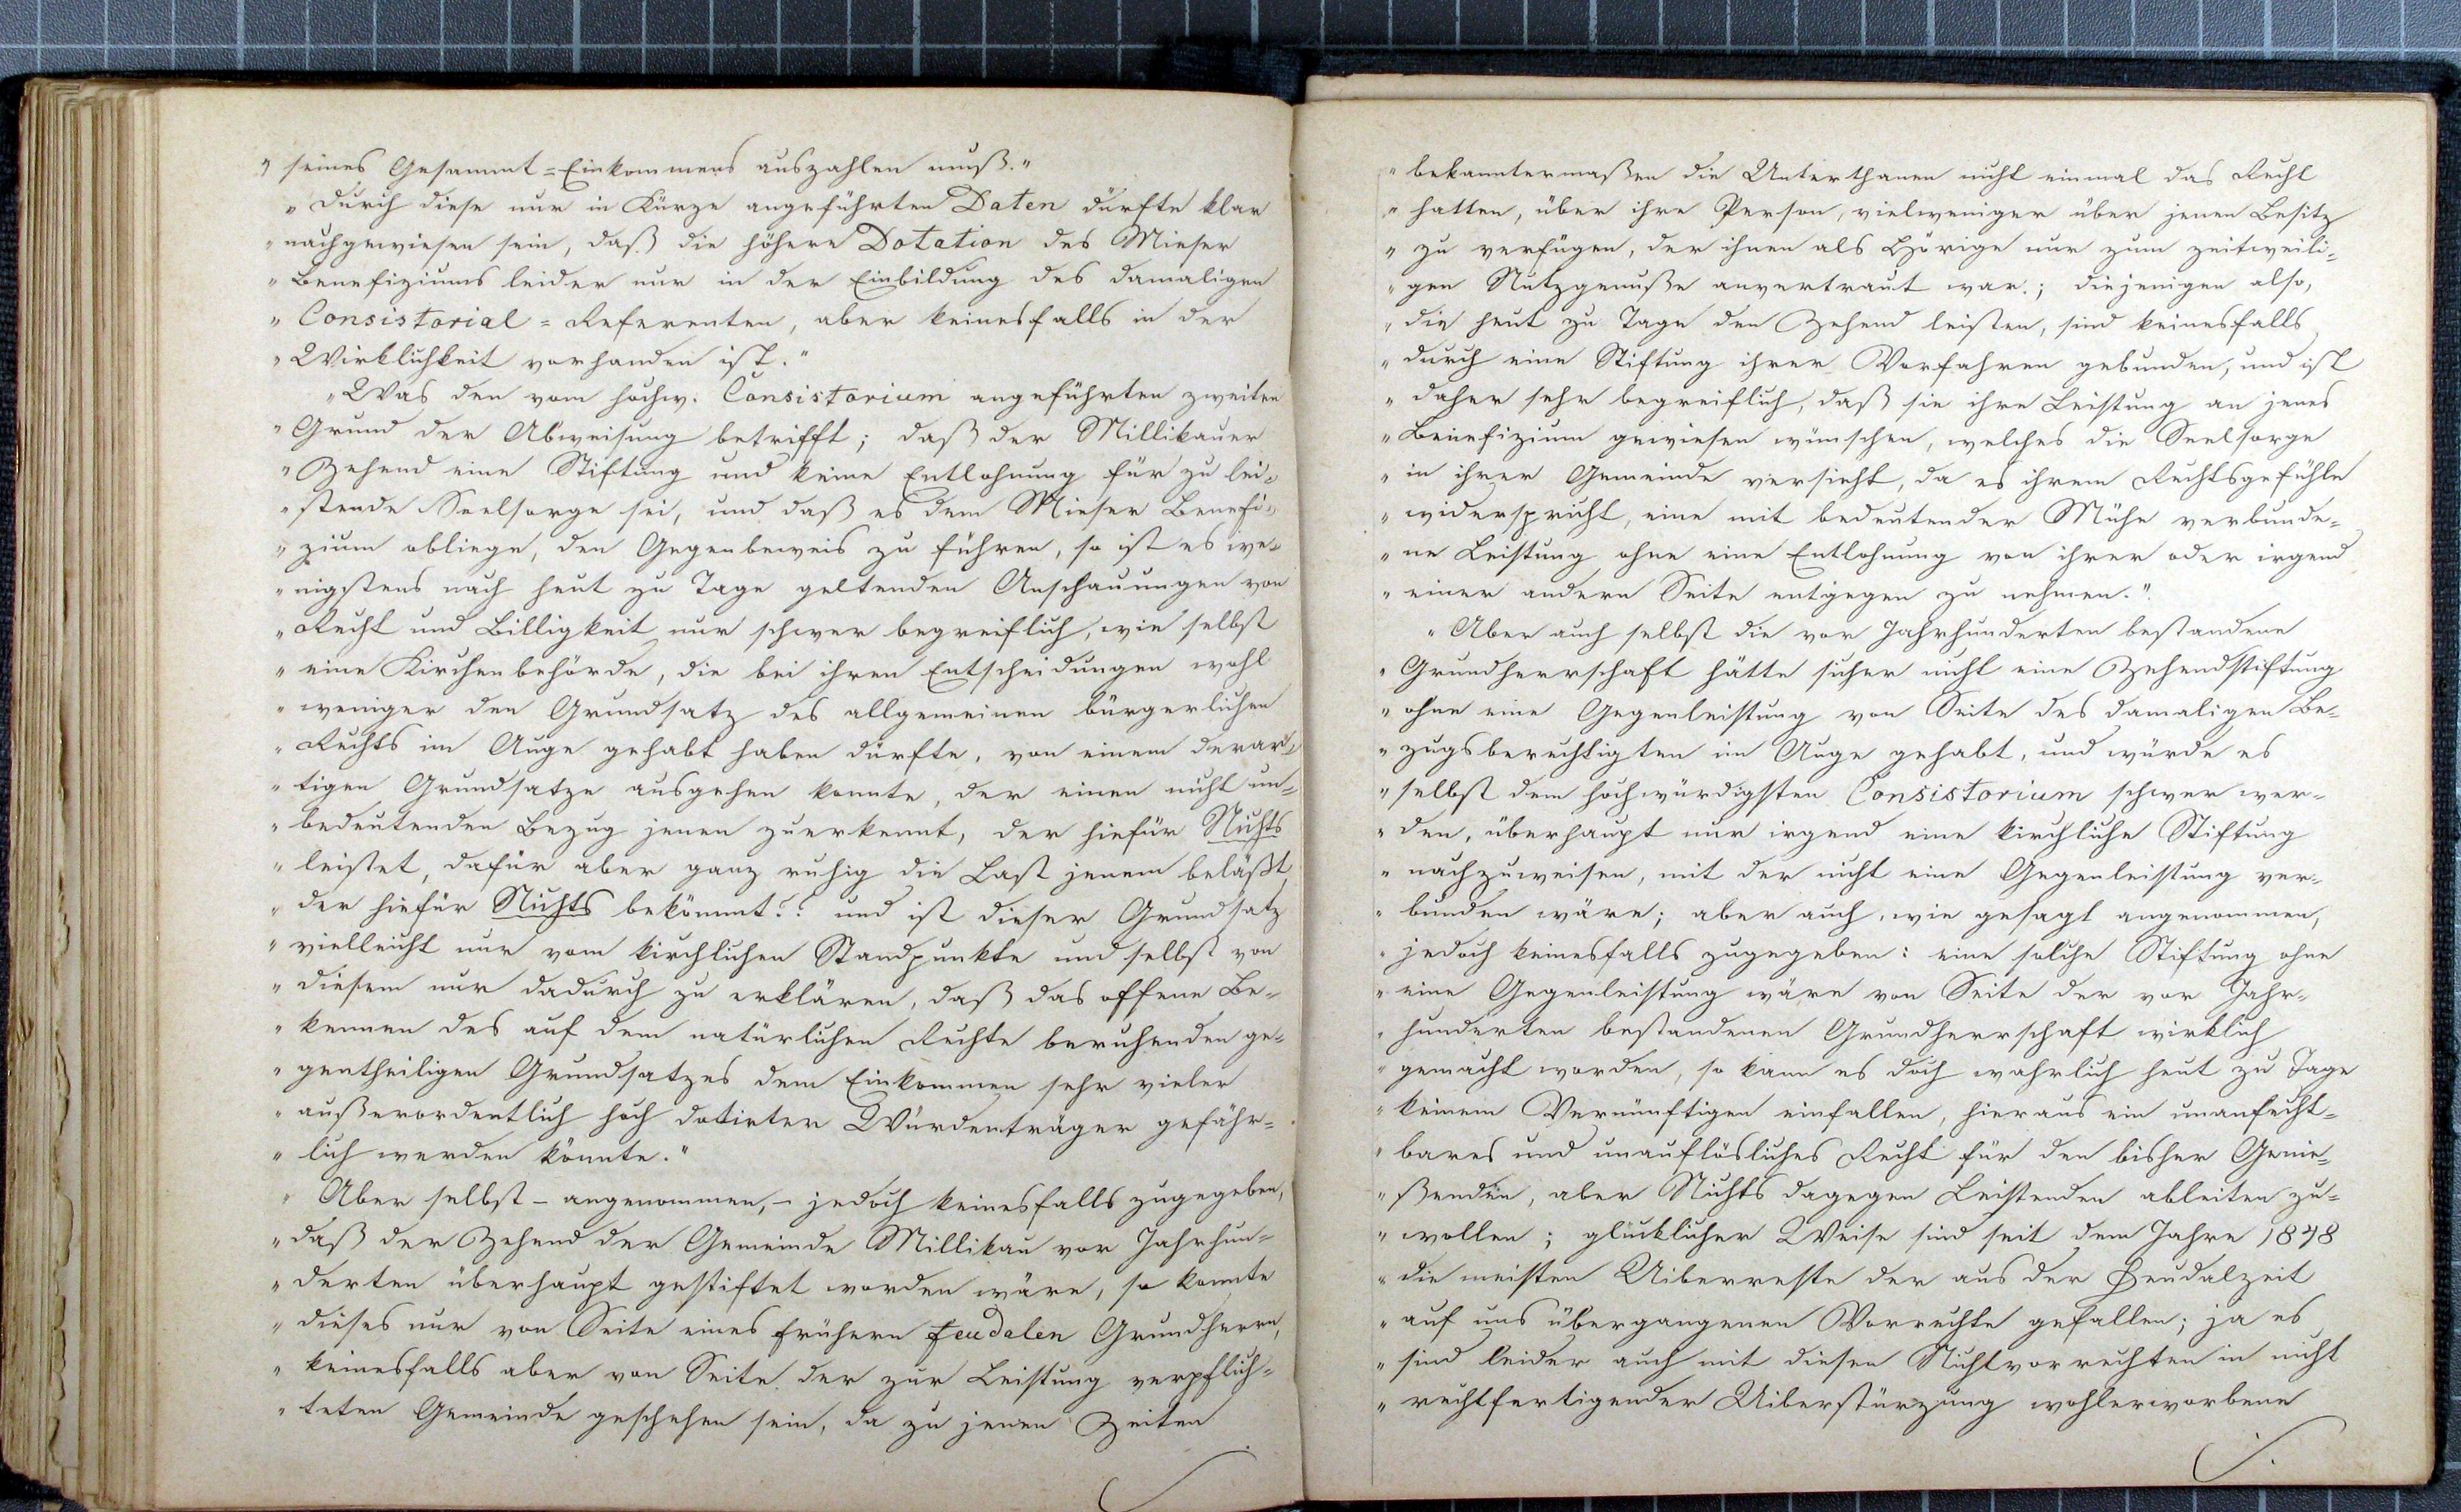 " seines Gesammt=Einkommens auszahlen muß."
" Durch diese nur in Kürze angeführten Daten dürfte klar
" nachgewiesen sein, daß die höhere Dotation des Mieser
" Benefiziums leider nur in der Einbildung des damaligen
" Consistorial=Referenten, aber keinesfalls in der
" Wirklichkeit vorhanden ist."
" Was den vom hochw. Consistorium angeführten zweiten
" Grund der Abweisung betrifft; daß der Millikauer
" Zehend eine Stiftung und keine Entlohnung für zu lei=
" stende Seelsorge sei, und daß es dem Mieser Benefi=
" zium obliege, den Gegenbeweis zu führen, so ist es we=
" nigstens nach heut zu Tage geltenden Anschauungen von
" Recht und Billigkeit nur schwer begreiflich, wie selbst
" eine Kirchenbehörde, die bei ihren Entscheidungen wohl
" weniger den Grundsatz des allgemeinen bürgerlichen
" Rechts im Auge gehabt haben dürfte, von einem derar=
" tigen Grundsatze ausgehen konnte, der einen nicht un=
" bedeutenden Bezug jenen zuerkennt, der hiefür Nichts
" leistet, dafür aber ganz ruhig die Last jenem beläßt,
" der hiefür Nichts bekömmt?? und ist dieser Grundsatz
" vielleicht nur vom kirchlichen Standpunkte und selbst von
" diesem nur dadurch zu erklären, daß das offene Be=
" kennen des auf dem natürlichen Rechte beruhenden ge=
" gentheiligen Grundsatzes dem Einkommen sehr vieler
" außerordentlich hoch dotirter Würdenträger gefähr=
" lich werden könnte."
" Aber selbst - angenommen, - jedoch keinesfalls zugegeben,
" daß der Zehend der Gemeinde Millikau vor Jahrhun=
" derten überhaupt gestiftet worden wäre, so konnte
" dieses nur von Seite eines frühern feudalen Grundherrn,
" keinesfalls aber von Seite der zur Leistung verpflich=
" teten Gemeinde geschehen sein, da zu jenen Zeiten
" bekanntermaßen die Unterthanen nicht einmal das Recht
" hatten, über ihre Person, vielweniger über jenen Besitz
" zu verfügen, der ihnen als Hörige nur zum zeitweili=
" gen Nutzgenuße anvertraut war.; diejenigen also,
" die heut zu Tage den Zehend leisten, sind keinesfalls
" durch eine Stiftung ihrer Vorfahren gebunden, und ist
" daher sehr begreiflich, daß sie ihre Leistung an jenes
" Benefizium gewiesen wünschen, welches die Seelsorge
" in ihrer Gemeinde versieht, da es ihrem Rechtsgefühle
" widerspricht, eine mit bedeutender Mühe verbunde=
" ne Leistung ohne eine Entlohnung von ihrer oder irgend
" einer andern Seite entgegen zu nehmen."
" Aber auch selbst die vor Jahrhunderten bestandene
" Grundherrschaft hätte sicher nicht eine Zehendstiftung
" ohne eine Gegenleistung von Seite des damaligen Be=
" zugsberechtigten im Auge gehabt, und würde es
" selbst dem hochwürdigsten Consistorium schwer wer=
" den, überhaupt nur irgend eine kirchliche Stiftung
" nachzuweisen, mit der nicht eine Gegenleistung ver=
" bunden wäre; aber auch, wie gesagt angenommen,
" jedoch keinesfalls zugegeben: eine solche Stiftung ohne
" eine Gegenleistung wäre von Seite der vor Jahr=
" hunderten bestandenen Grundherrschaft wirklich
" gemacht worden, so kann es doch wahrlich heut zu Tage
" keinem Vernünftigen einfallen, hieraus ein unanfecht=
" bares und unauflösliches Recht für den bisher Genie=
" ßenden, aber Nichts dagegen Leistenden ableiten zu=
" wollen; glücklicher Weise sind seit dem Jahre 1848
" die meisten Uiberreste der aus der Feudalzeit
" auf uns übergangenen Vorrechte gefallen; ja es
" sind leider auch mit diesen Nichtvorrechten in nicht
" rechtfertigender Uiberstürzung wohlerworbene